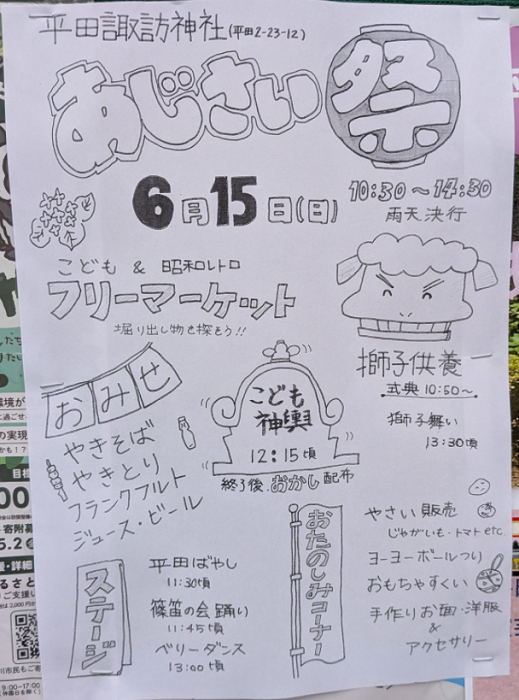 平田諏訪神社(平田2-23-12)
あじさい祭
6月15日(日)
10:30〜14:30
雨天決行
こども & 昭和レトロ
フリーマーケット
掘り出し物を探そう!!
獅子供養
式典 10:50〜
獅子舞い
13:30頃
おみせ
やきそば
やきとり
フランクフルト
ジュース・ビール
こども
神輿
12:15頃
終了後 おかし配布
ステージ
平田ばやし
11:30頃
篠笛の会 踊り
11:45頃
ベリーダンス
13:00頃
おたのしみコーナー
やさい販売
じゃがいも・トマトetc
ヨーヨーボールつり
おもちゃすくい
手作りお面・洋服
&
アクセサリー